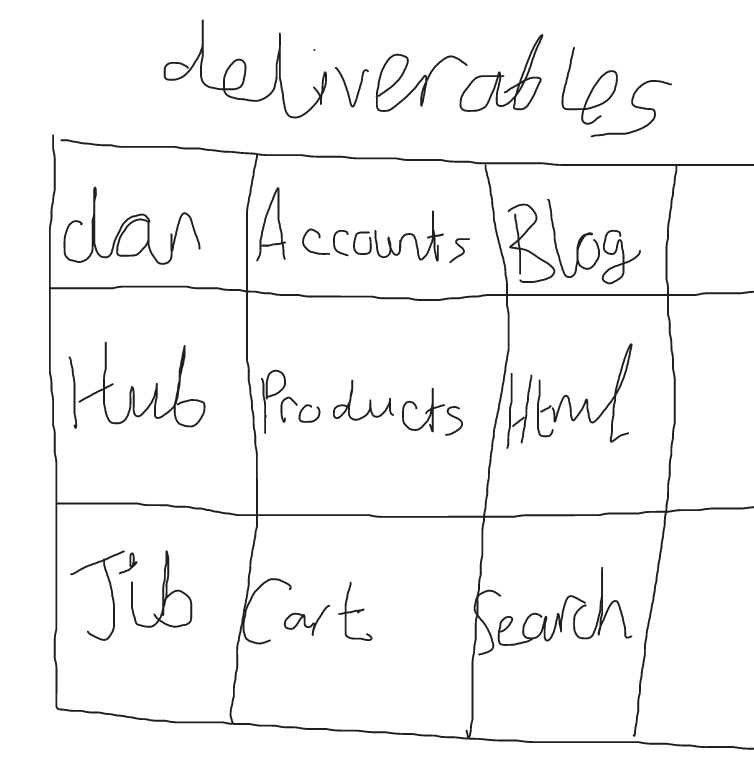 deliverables
dan Accounts Blog
Hub Products Html
Jib Cart Search